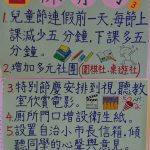 3
1. 兒童節連假前一天,每節上
課減少五分鐘,下課多五
分鐘。
2. 增加多元社團(圍棋社、桌遊社)
3. 特別節慶安排到視聽教
室欣賞電影。
4. 廁所門口增設衛生紙。
5. 設置自治小市長信箱,傾
聽同學的心聲與意見。